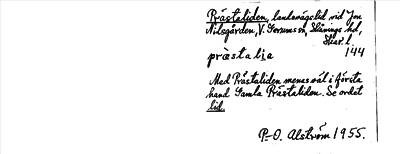 Prästaliden, landsvägslid vid Jon
Nilsgården, V. Gerumss n, Skånings hd,
Skar. l.
præstalia 1/44
Med Prästaliden menas väl i första
hand Gamla Prästaliden. Se ordet
lid.
P.-O. Alström 1955.